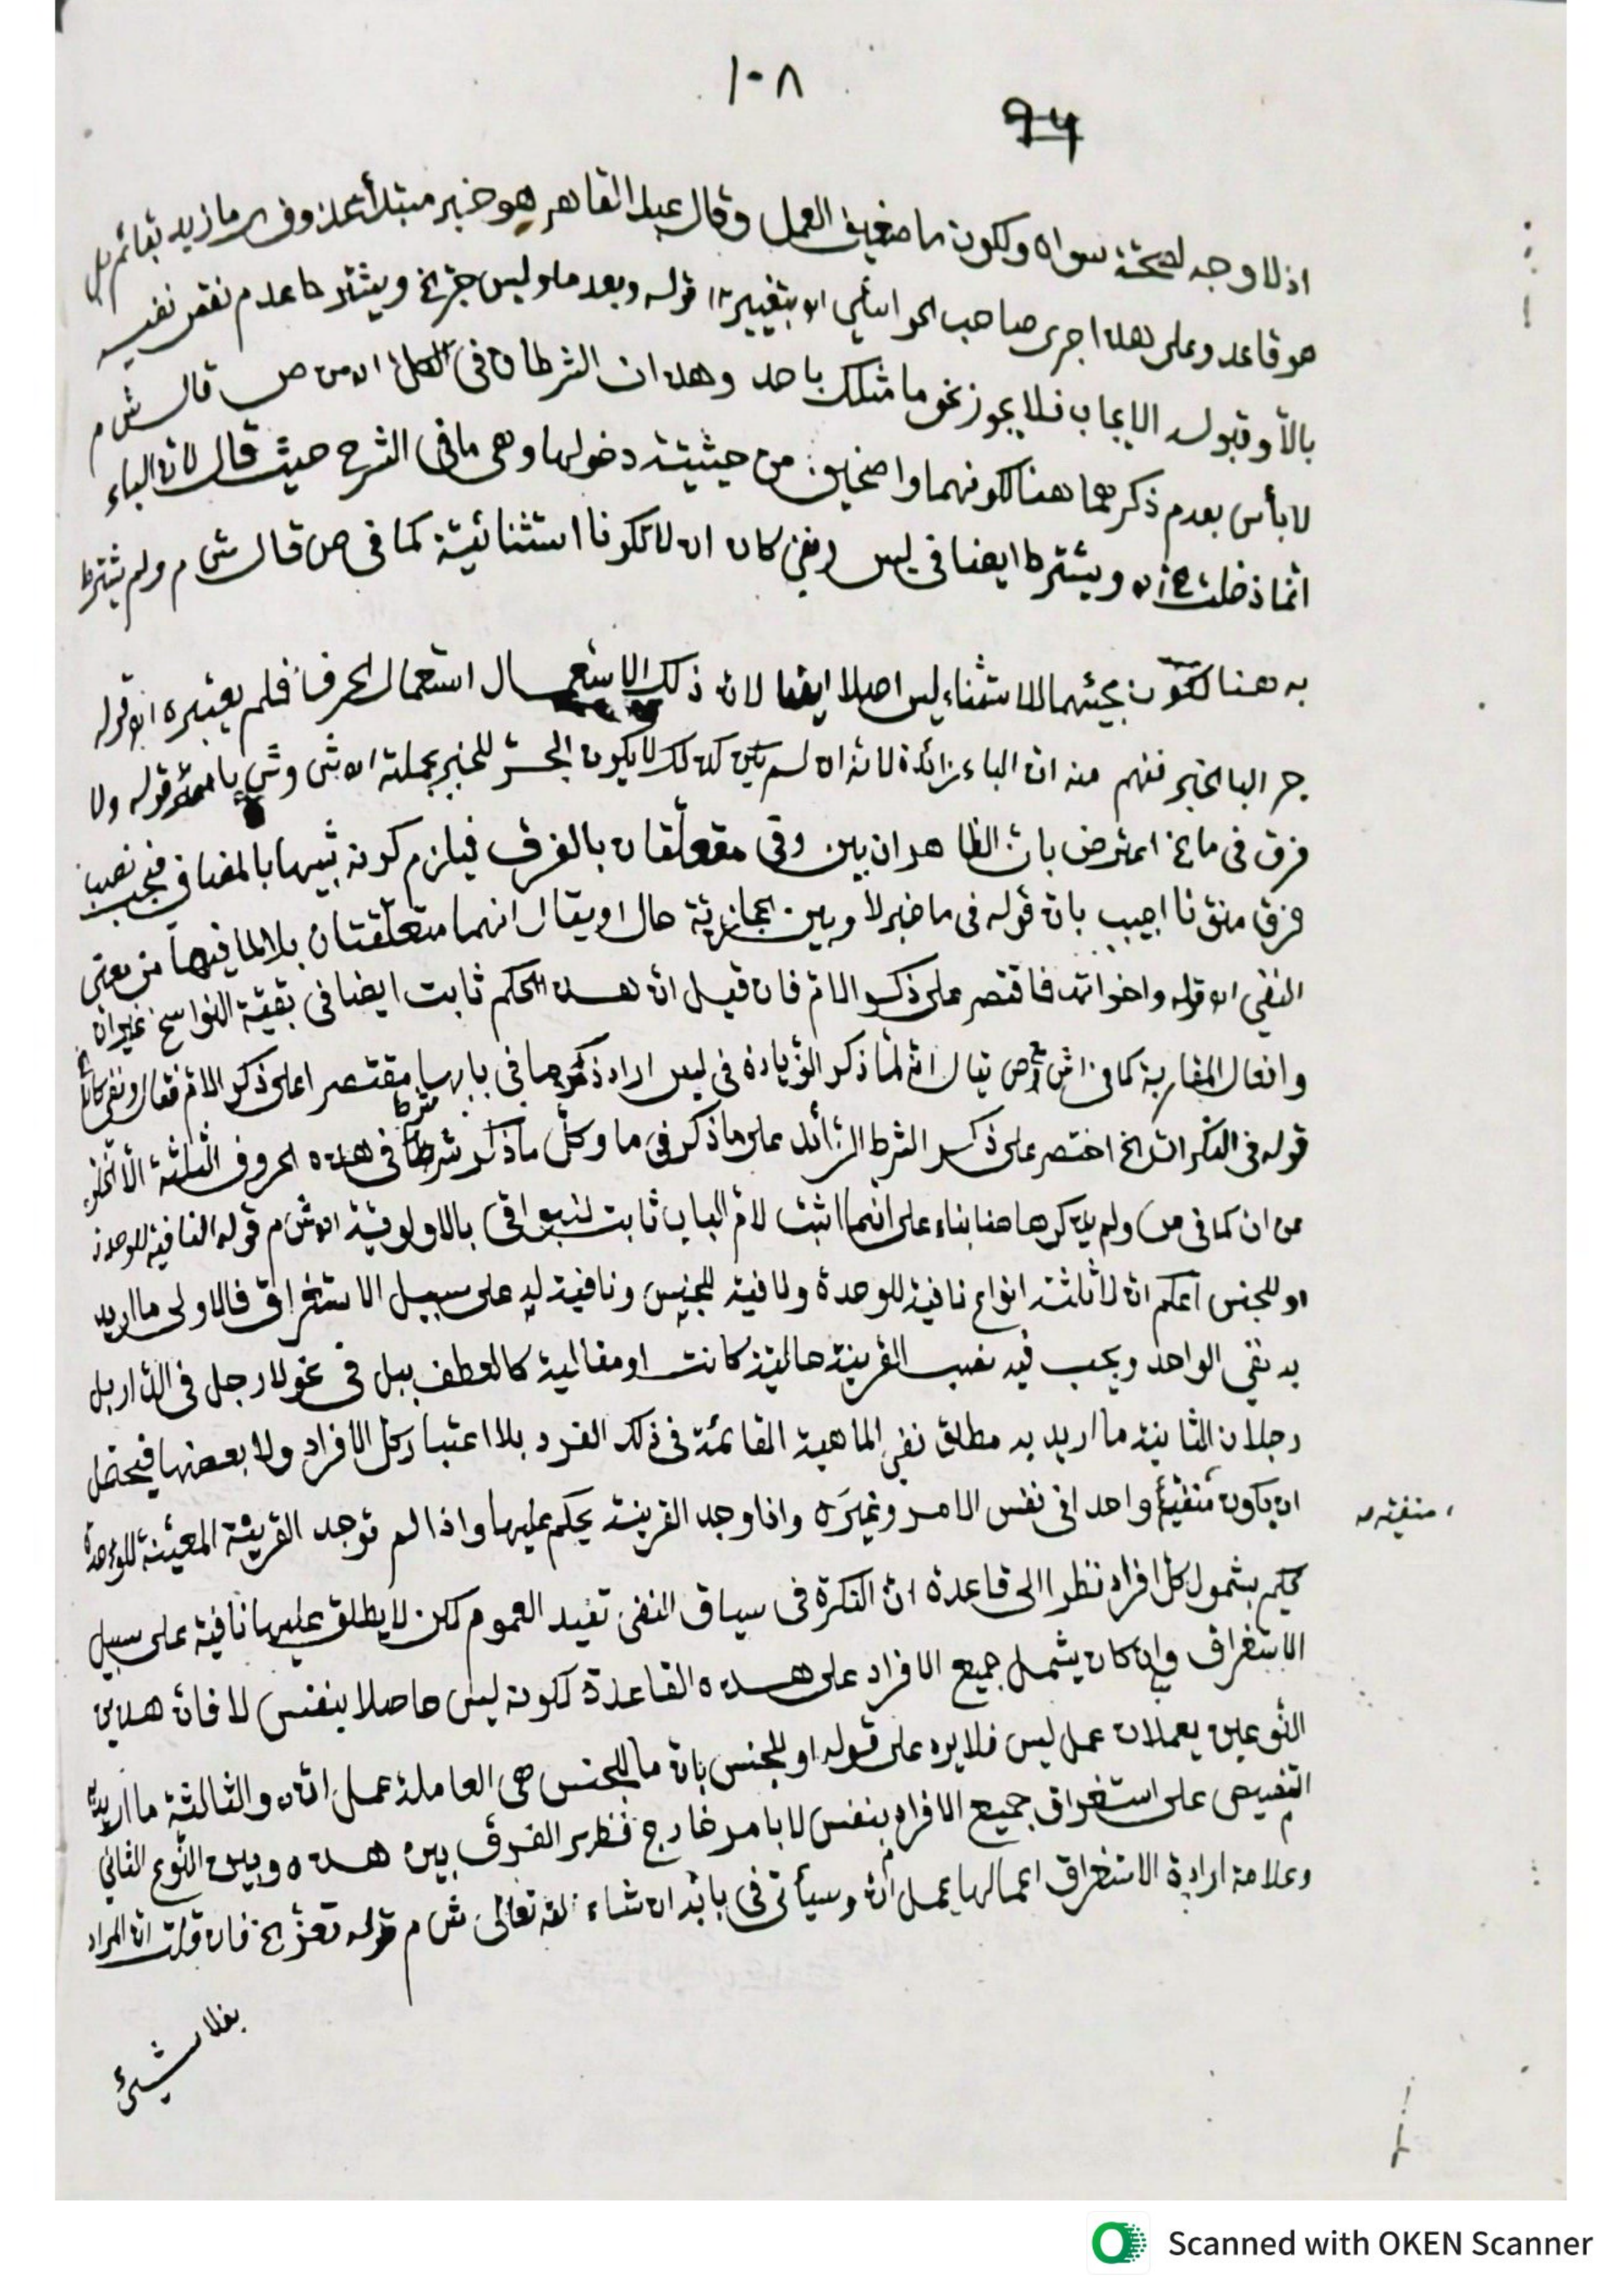 ١٠٨
٩٤
اذ لا وجه لصحة سواه ولكون ما ضعيف العمل وقال عبد القاهر هو خبر مبتدأ محذوف اى ما زيد بقائم بل
هو قاعد وعلى هذا جرى صاحب الحواشى اه بتغيير قوله وبعد ما وليس جرّ الخ ويشترط عدم نقض نفيه
بالاّ وقبوله الايجاب فلا يجوز نحو ما مثلك باحد وهذان الشرطان فى الكل اه من ص قال ش م
لا بأس بعدم ذكرهما هنا لكونهما واضحين من حيثية دخولها وهى ما فى الشرح حيث قال لان الباء
انما دخلت الخ اه ويشترط ايضا فى ليس ونفى كان ان لا تكونا استثنائية كما فى ص قال ش م ولم يشترط
به هنا لكون مجيئهما للاستثناء ليس اصلا ايضا لان ذلك الاستعمال استعمال الحرف فلم يعتبره اه قوله
جر البا الخبر ففهم منه ان الباء زائدة لانه ان لم يكن كذلك لا يكون الجر للخبر بجملته اه ش وش قوله ولا
فرق فى ما الخ اعترض بان الظاهر ان بين وفى متعلقان بالفرق فيلزم كونه شبيها بالمضاف فيجب نصب
فرق منونا اجيب بان قوله فى ما خبر لا وبين حجازية حال او يقال انهما متعلقتان بلا لما فيها من معنى
النفى اه قوله واخواته فاقتصر على ذكر الام فان قيل ان هذا الحكم ثابت ايضا فى بقية النواسخ غير ان
وافعال المقاربة كما فى ص يقال انه لما ذكر الزيادة فى ليس اراد ذكرها فى بابها مقتصرا على ذكر الام فقال ونفى كان الخ
قوله فى النكرات الخ اختصر على ذكر الشرط الزائد على ما ذكر فى ما وكل ما ذكر شرط فى هذه الحروف الثلثة الا
من ان كما فى ص ولم يذكرها هنا بناء على انما اثبت لام الباب ثابت للبواقى بالاولوية اه ش م قوله النافية للوحدة
او للجنس اعلم ان لا ثلثة انواع نافية للوحدة ونافية للجنس ونافية له على سبيل الاستغراق فالاولى ما اريد
به نفى الواحد ويجب فيه نصب القرينة حالية كانت او مقالية كالعطف ببل فى نحو لا رجل فى الدار بل
رجلان الثانية ما اريد به مطلق نفى الماهية القائمة فى ذلك الفرد بلا اعتبار كل الافراد ولا بعضها فيحتمل
ان يكون منفيه واحدا فى نفس الامر وغيره واذا وجد القرينة يحكم عليها واذا لم توجد القرينة المعينة للوحدة
منفيته
يحكم بشمول كل افراد نظرا الى قاعدة ان النكرة فى سياق النفى تفيد العموم لكن لا يطلق عليها نافية على سبيل
الاستغراق وان كان يشمل جميع الافراد على هذه القاعدة لكونه ليس حاصلا بنفس لا فان هذين
النوعين يعملان عمل ليس فلا يرد على قوله او للجنس بان ما للجنس هى العاملة عمل ان والثالثة ما اريد به
التنصيص على استغراق جميع الافراد بنفس لا بامر خارج فظهر الفرق بين هذه وبين النوع الثانى
وعلامة ارادة الاستغراق اعمالها عمل ان وسيأتى فى بابه ان شاء الله تعالى ش م قوله تعزّ الخ فان قلت ان المراد
بفلا شيئ
Scanned with OKEN Scanner